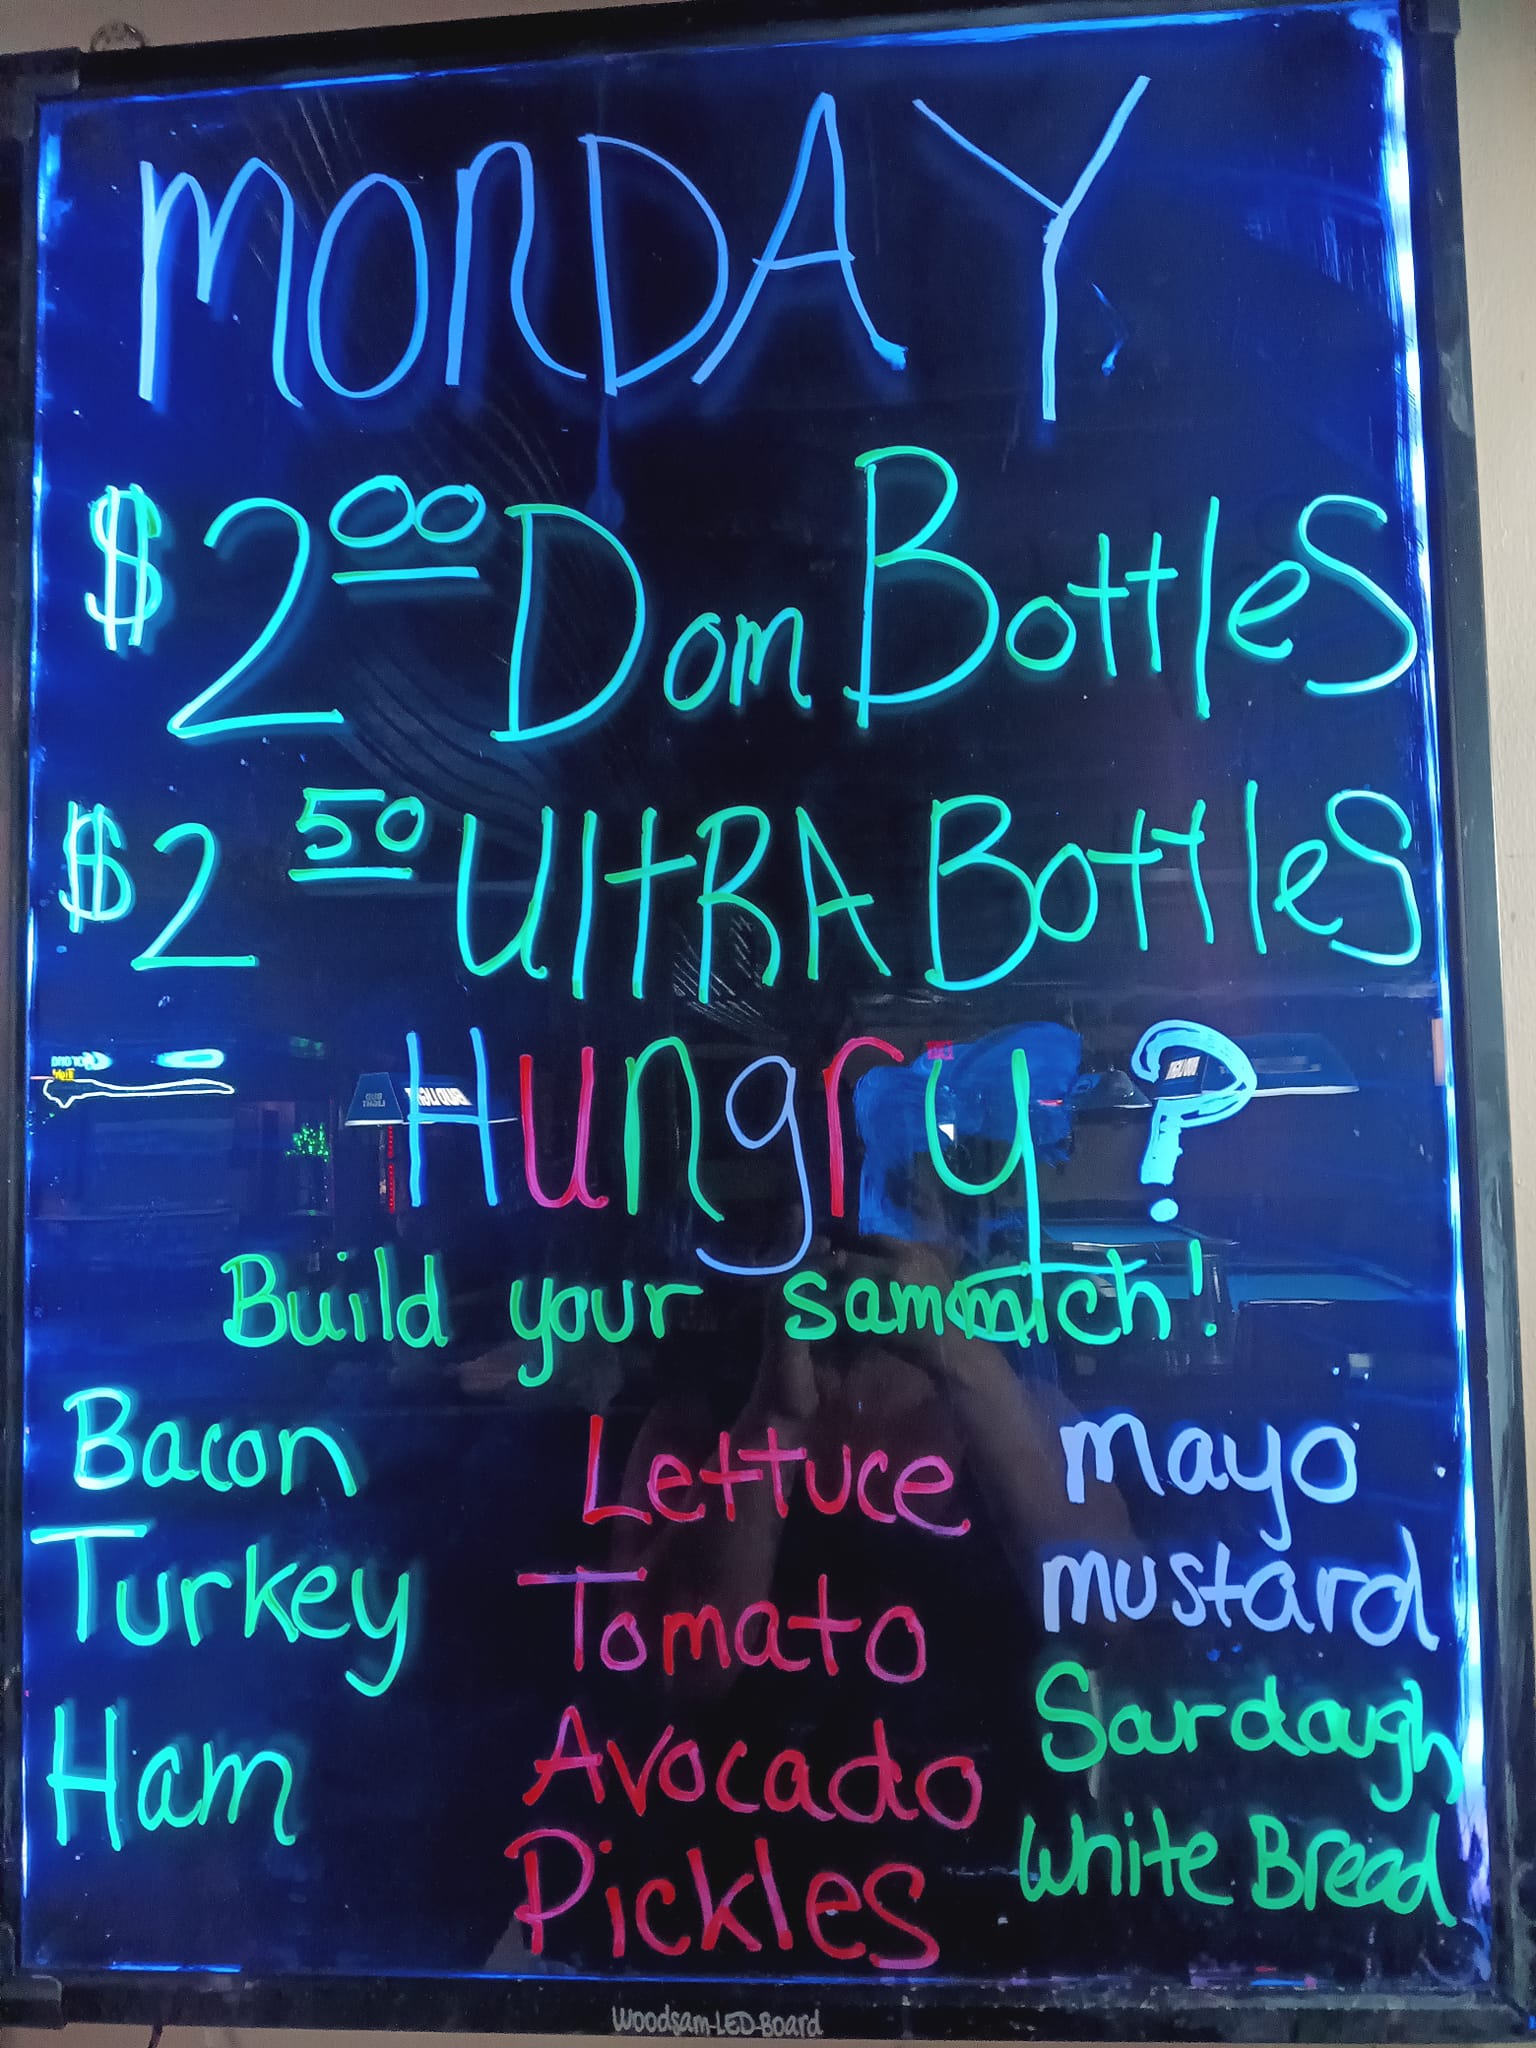 MONDAY
$2.00 Dom Bottles
$2.50 UltRA Bottles
Hungry?
Build your sammich!
Bacon
Turkey
Ham
Lettuce
Tomato
Avocado
Pickles
mayo
mustard
Sourdough
White Bread
Woodsam-LED-Board